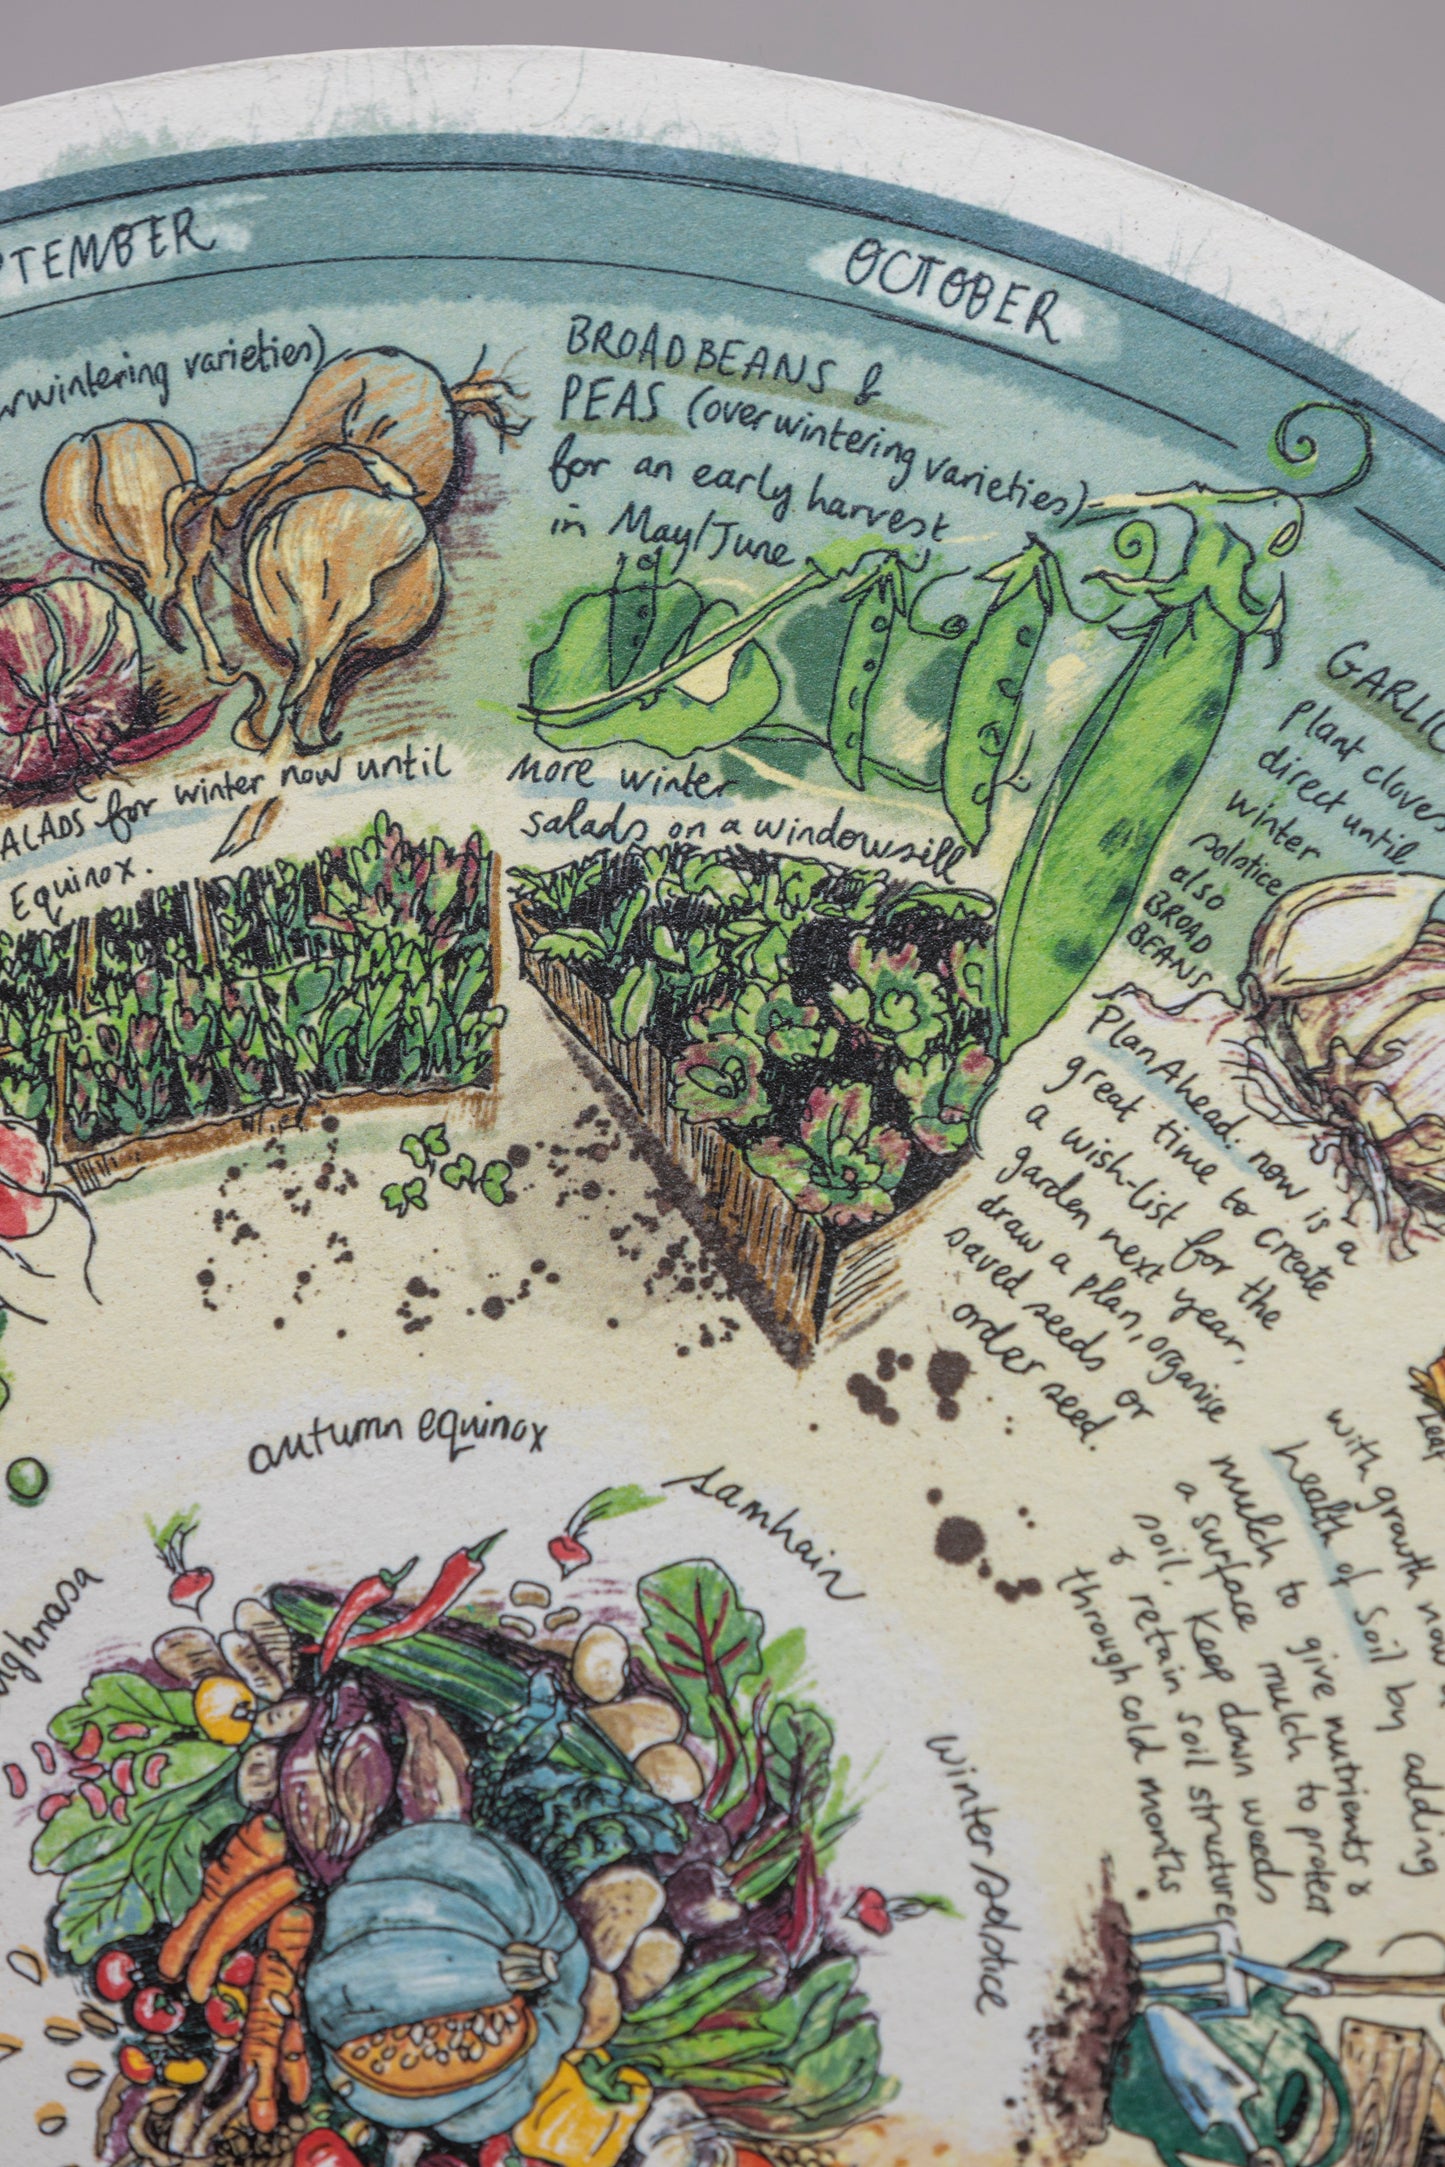 PTEMBER
OCTOBER
rwintering varieties)
BROADBEANS &
PEAS (overwintering varieties)
for an early harvest
in May/June
ALADS for winter now until
Equinox.
More winter
salads on a windowsill
GARLIC
plant cloves
direct until
winter
solstice
also
BROAD
BEANS
Plan Ahead. now is a
great time to create
a wish-list for the
garden next year,
draw a plan, organise
saved seeds or
order seed.
Leaf
with growth now
health of Soil by adding
mulch to give nutrients &
a surface mulch to protect
soil. Keep down weeds
& retain soil structure
through cold months
autumn equinox
samhain
winter solstice
ughnasa